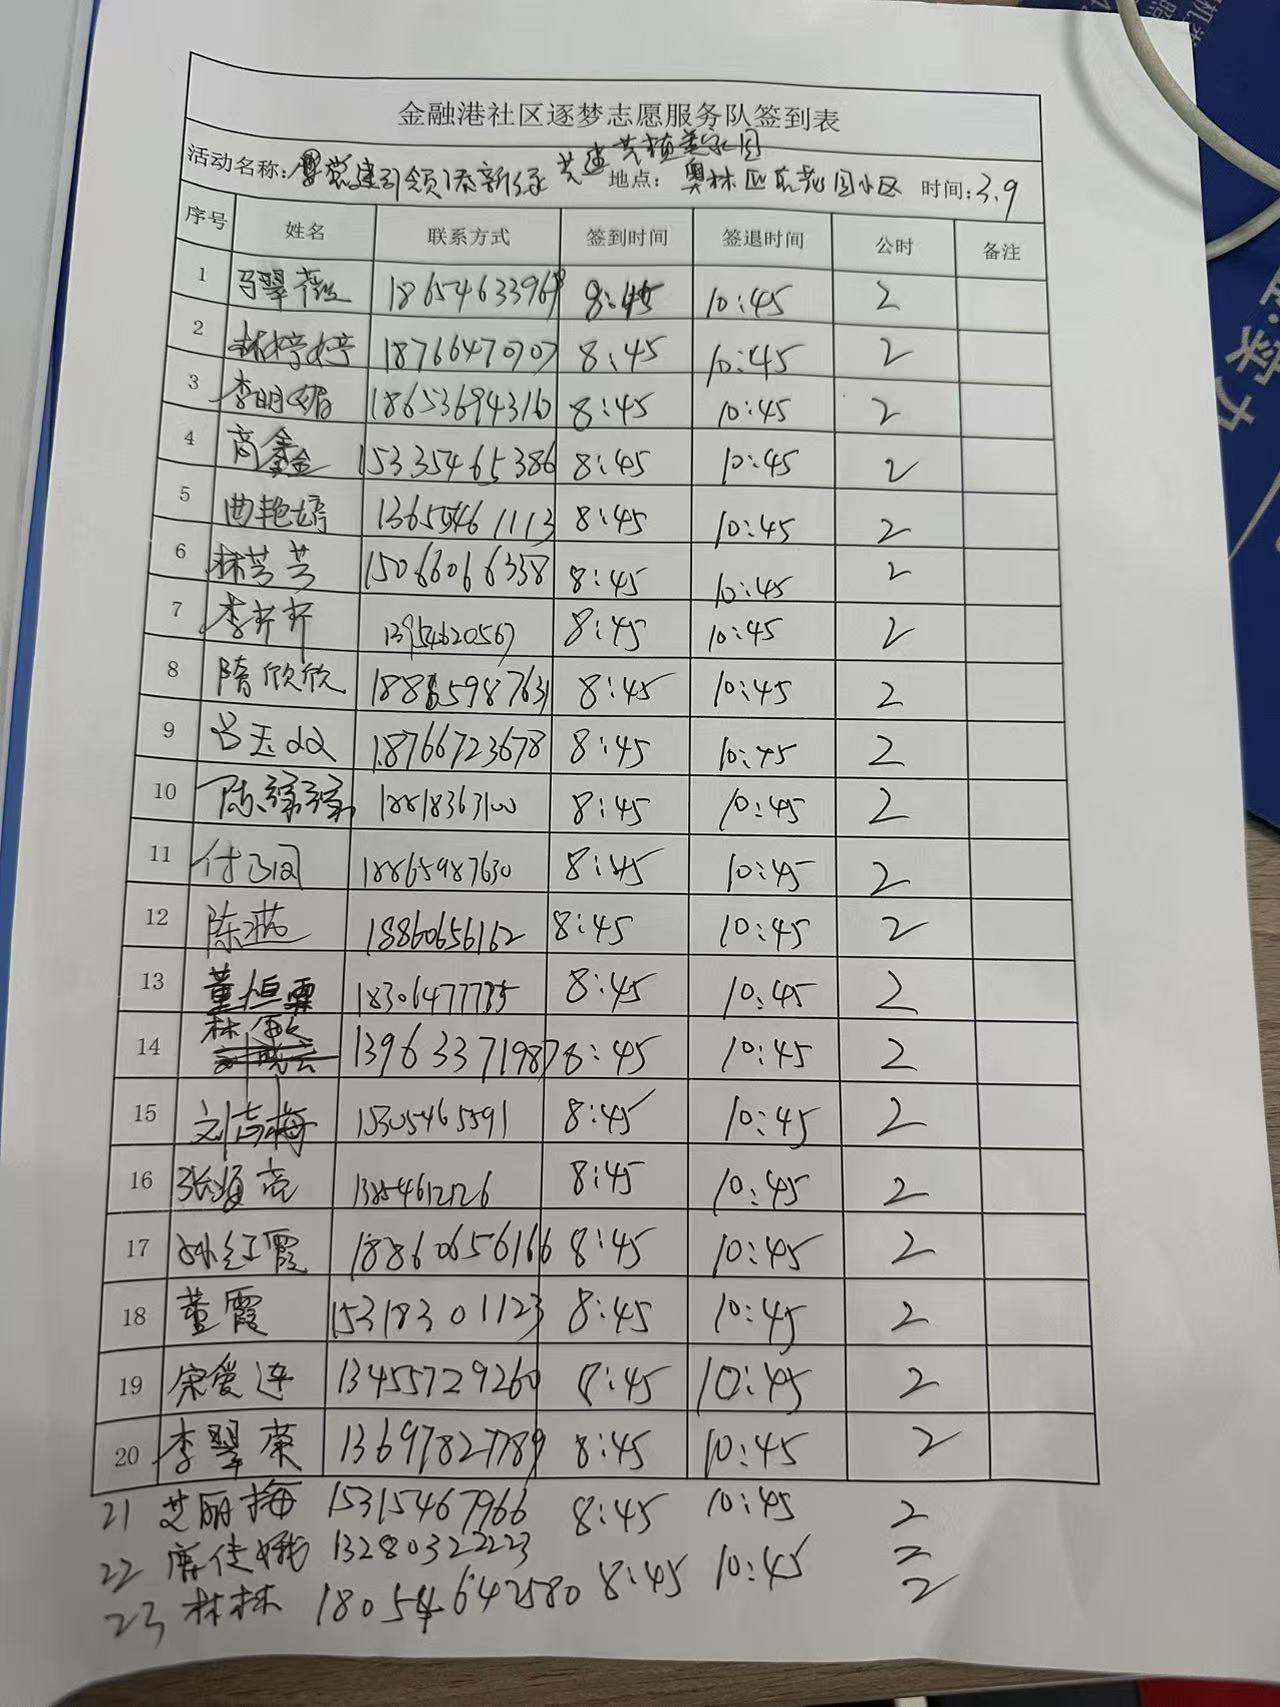 金融港社区逐梦志愿服务队签到表
活动名称: 党建引领添新绿 共建共植美家园 地点: 奥林匹克花园小区 时间:3.9
序号 姓名 联系方式 签到时间 签退时间 公时 备注
1 马翠薇 18654633968 8:45 10:45 2
2 林婷婷 18766470707 8:45 10:45 2
3 李明娟 18653694316 8:45 10:45 2
4 商鑫 15335465386 8:45 10:45 2
5 曲艳婷 13655461113 8:45 10:45 2
6 林芸芸 15066066338 8:45 10:45 2
7 李芹芹 13954620567 8:45 10:45 2
8 隋欣欣 18865987631 8:45 10:45 2
9 吕玉 18766723678 8:45 10:45 2
10 陈 8:45 10:45 2
11 付 18865987630 8:45 10:45 2
12 陈燕 18860656162 8:45 10:45 2
13 董恒 18306477785 8:45 10:45 2
14 林敏 13963371987 8:45 10:45 2
15 刘高梅 15305465591 8:45 10:45 2
16 张海亮 13854612126 8:45 10:45 2
17 孙红霞 18860656166 8:45 10:45 2
18 董霞 15318301123 8:45 10:45 2
19 宋爱连 13455729260 8:45 10:45 2
20 李翠荣 13697827789 8:45 10:45 2
21 艾丽梅 15315467966 8:45 10:45 2
22 唐佳娥 13280322223 2
23 林林 18054642580 8:45 10:45 2